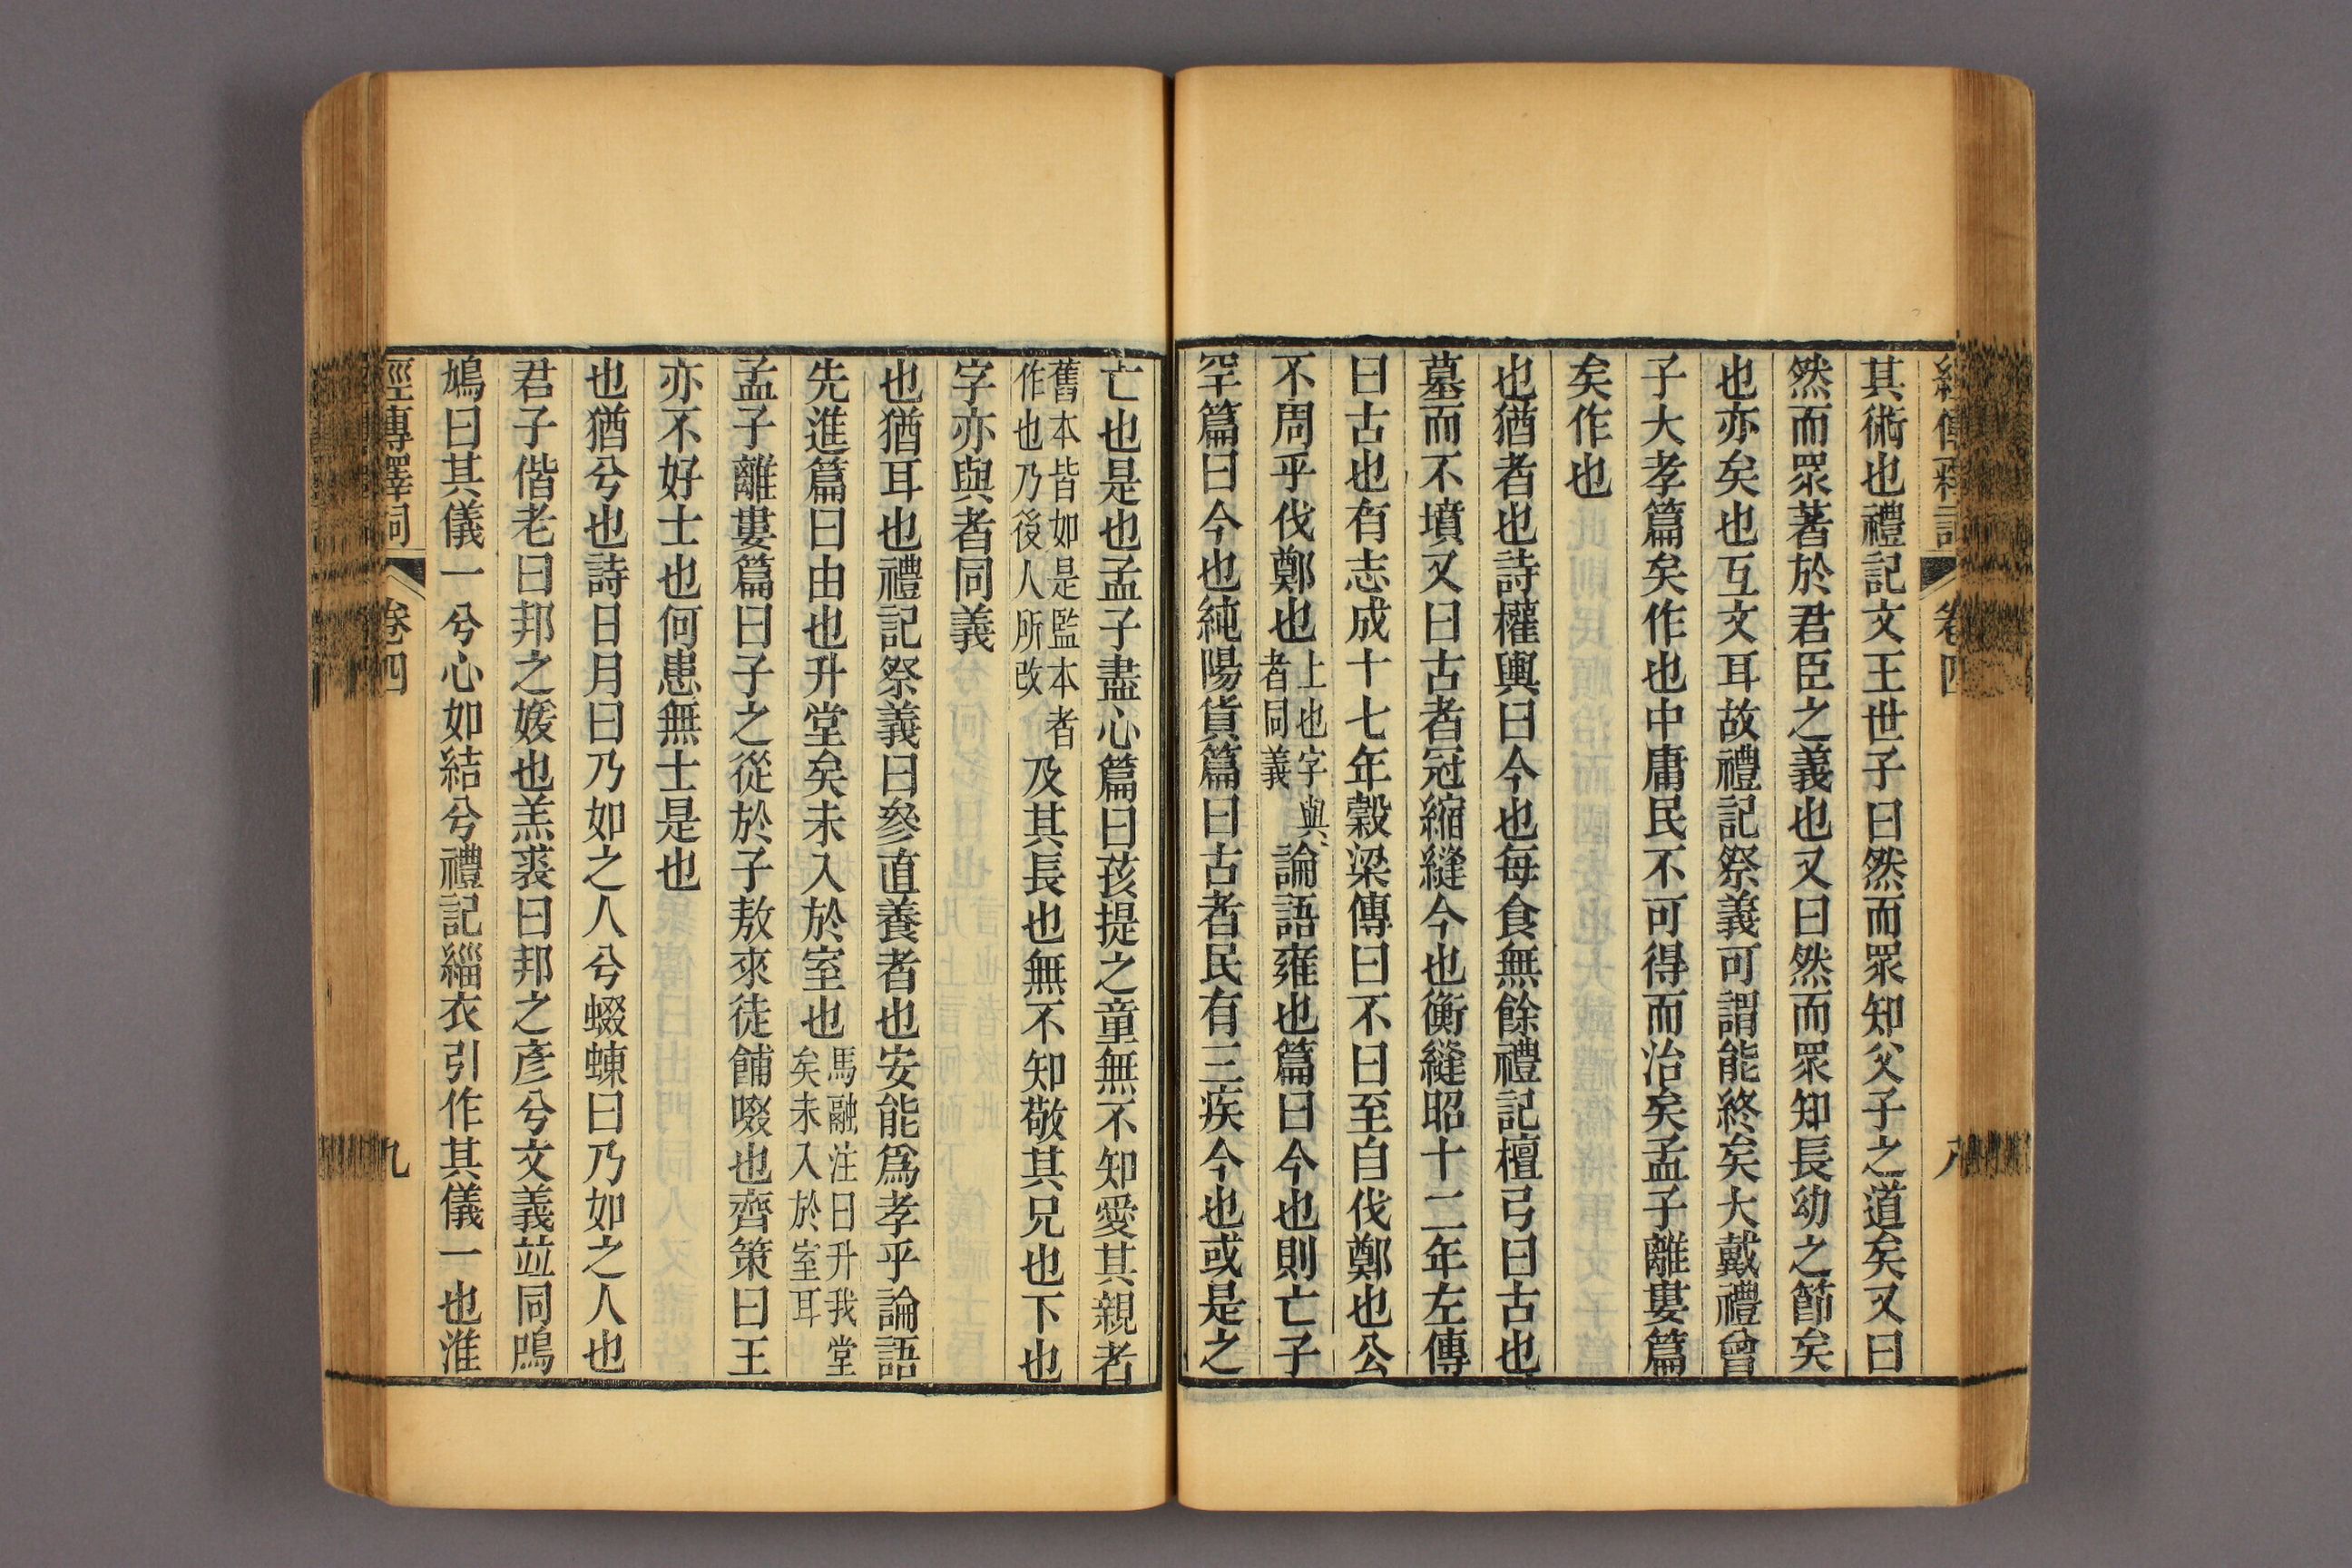 經傳釋詞 卷四 八
其術也禮記文王世子曰然而眾知父子之道矣又曰
然而眾著於君臣之義也又曰然而眾知長幼之節矣
也亦矣也互文耳故禮記祭義可謂能終矣大戴禮曾
子大孝篇矣作也中庸民不可得而治矣孟子離婁篇
矣作也
也猶者也詩權輿曰今也每食無餘禮記檀弓曰古也
墓而不墳又曰古者冠縮縫今也衡縫昭十二年左傳
曰古也有志成十七年穀梁傳曰不曰至自伐鄭也公
不周乎伐鄭也上也字與者同義論語雍也篇曰今也則亡子
罕篇曰今也純陽貨篇曰古者民有三疾今也或是之
亡也是也孟子盡心篇曰孩提之童無不知愛其親者
舊本皆如是監本者作也乃後人所改及其長也無不知敬其兄也下也
字亦與者同義
也猶耳也禮記祭義曰參直養者也安能爲孝乎論語
先進篇曰由也升堂矣未入於室也馬融注曰升我堂矣未入於室耳
孟子離婁篇曰子之從於子敖來徒餔啜也齊策曰王
亦不好士也何患無士是也
也猶兮也詩日月曰乃如之人兮蝃蝀曰乃如之人也
君子偕老曰邦之媛也羔裘曰邦之彥兮文義竝同鳲
鳩曰其儀一兮心如結兮禮記緇衣引作其儀一也淮
經傳釋詞 卷四 九